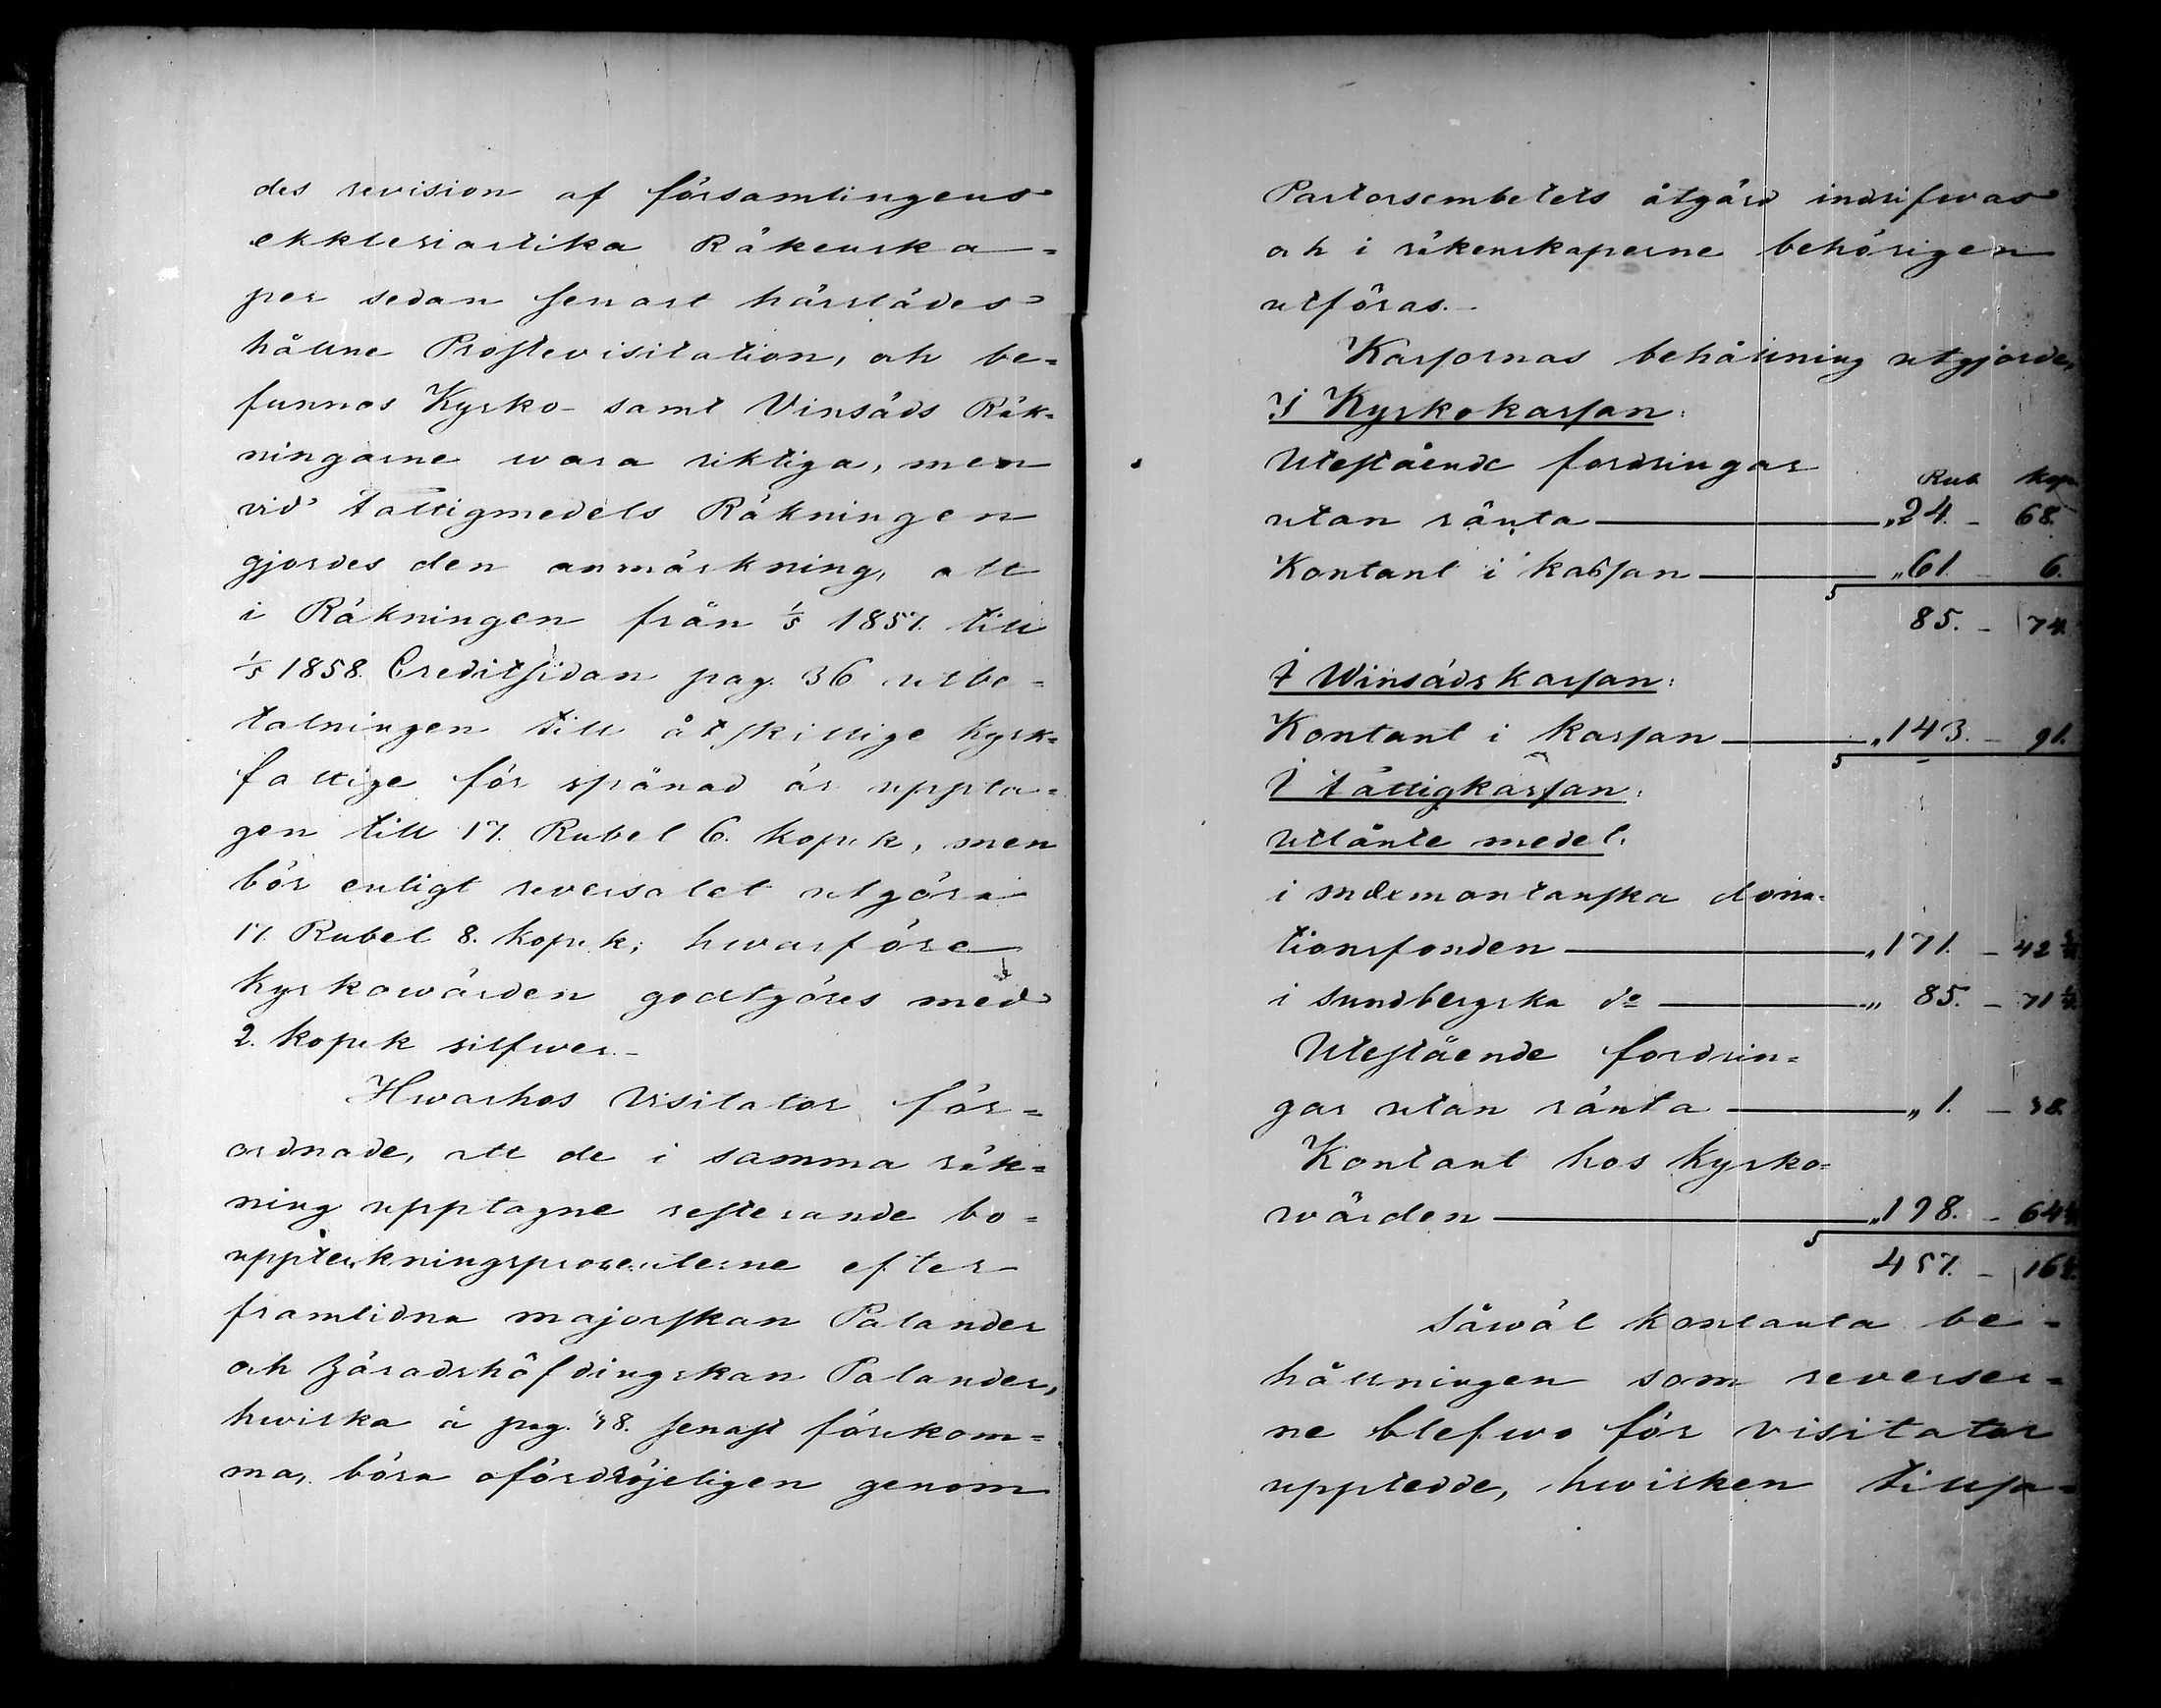 des revision af församlingens
ekklesiastika Räkenska-
per sedan senast härstädes
hållne Prostevisitation, och be-
funnos Kyrko- samt Vinsäds Räk-
ningarne wara riktiga, men
vid Fattigmedels Räkningen
gjordes den anmärkning, att
i Räkningen från 1/5 1857. till
1/5 1858. Creditsidan pag. 36 utbe-
talningen till åtskillige kyrk-
fattige för spånad är uppta-
gen till 17. Rubel 6. kopek, men
bör enligt reversalet utgöra
17. Rubel 8. kopek; hwarföre
kyrkowärden godtgöres med
2. kopek silfwer.-
Hwarhos Visitator för-
ordnade, att de i samma räk-
ning upptagne resterande bo-
uppteckningsprocenterne efter
framlidna majorskan Palander
och Häradshöfdingskan Palander,
hwilka å pag. 38. senast förekom-
ma, böra ofördröjeligen genom
Pastorsembetets åtgärd indrifwas
och i räkenskaperne behörigen
utföras.-
Kassornas behållning utgjorde,
I Kyrkokassan:
Utestående fordringar
Rub. kop.
utan ränta — „24. - 68.
Kontant i kassan — „61. - 6.
85. - 74.
I Winsädskassan:
Kontant i kassan — „143. - 91.
I Fattigkassan:
Utlånte medel.
tionsfonden — „171. - 42
i Sundbergska do — „ 85. - 71
Utestående fordrin-
gar utan ränta — „ 1. - 38.
Kontant hos kyrko-
wärden — „198. - 64
457. - 16
Såwäl kontanta be-
hållningen som reverser-
ne blefwo för visitator
uppledde, hwilken tillsa-